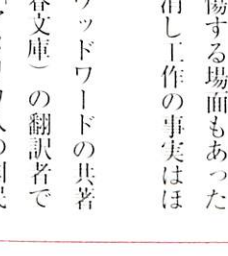 傷する場面もあった
消し工作の事実はほ
ッドワードの共著
春文庫）の翻訳者で